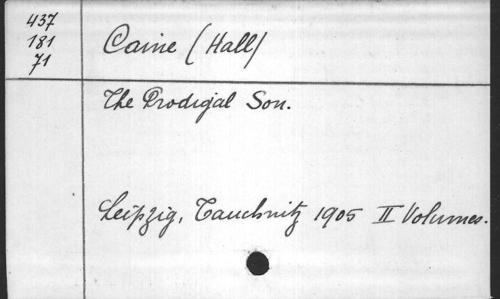 437
181
71
Caine (Hall)
The Prodigal Son.
Leipzig, Tauchnitz 1905 II Volumes.